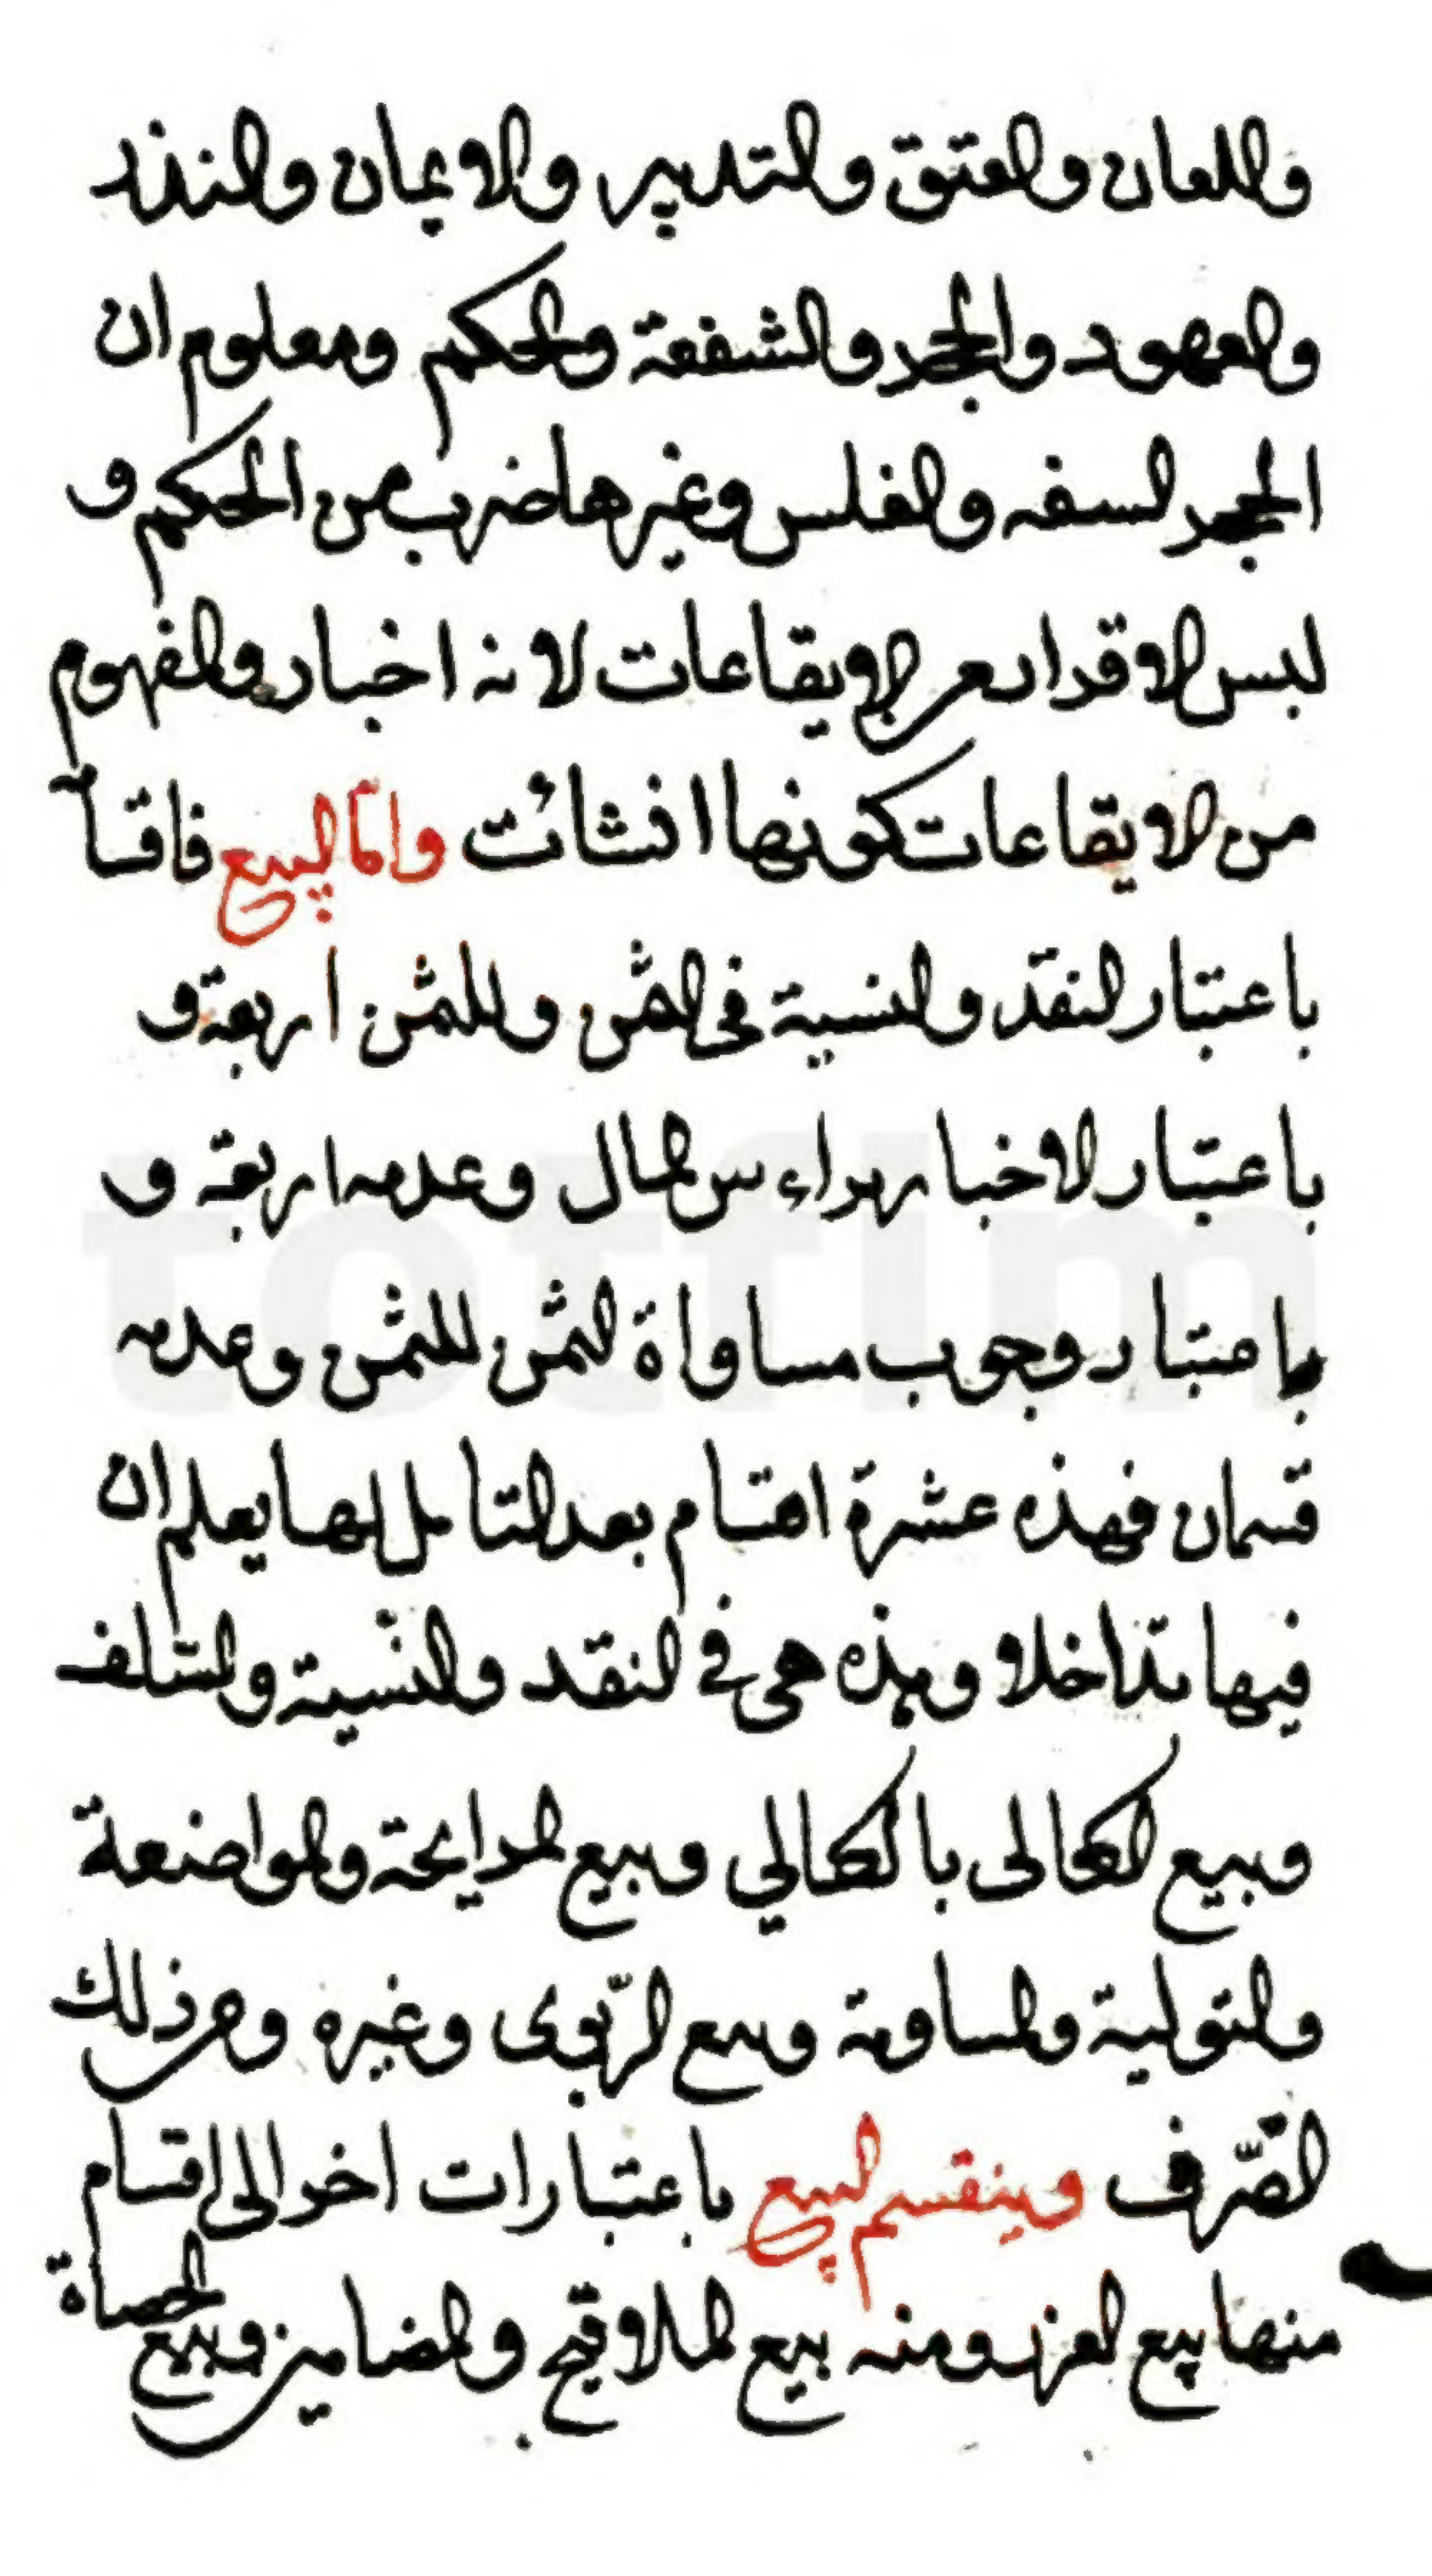 واللعان والعتق والتدبير والايمان والنذر
والعهود والحجر والشفعة والحكم ومعلوم ان
الحجر لسفه والفلس وغيرها ضرب من الحكم و
ليس الاقرار من الايقاعات لانه اخبار والمفهوم
من الايقاعات كونها انشائت وامّا البيع فاقسا
باعتبار النقد والنسية فى الثمن والمثمن اربعة و
باعتبار الاخبار براءس المال وعدمه اربعة و
باعتبار وجوب مساواة الثمن للمثمن وعدمه
قسمان فهذه عشرة اقسام بعد التامل لها يعلم ان
فيها تداخلا وهذه هى فى النقد والنّسية والسّلف
وبيع الكالى بالكالي وبيع المرابحة والمواضعة
والتولية والمساومة وبيع الرّبوى وغيره ومن ذلك
الصّرف وينقسم البيع باعتبارات اخر الى اقسام
منها بيع الغرر ومنه بيع الملاقيح والمضامين وبيع الحصاة
totfim